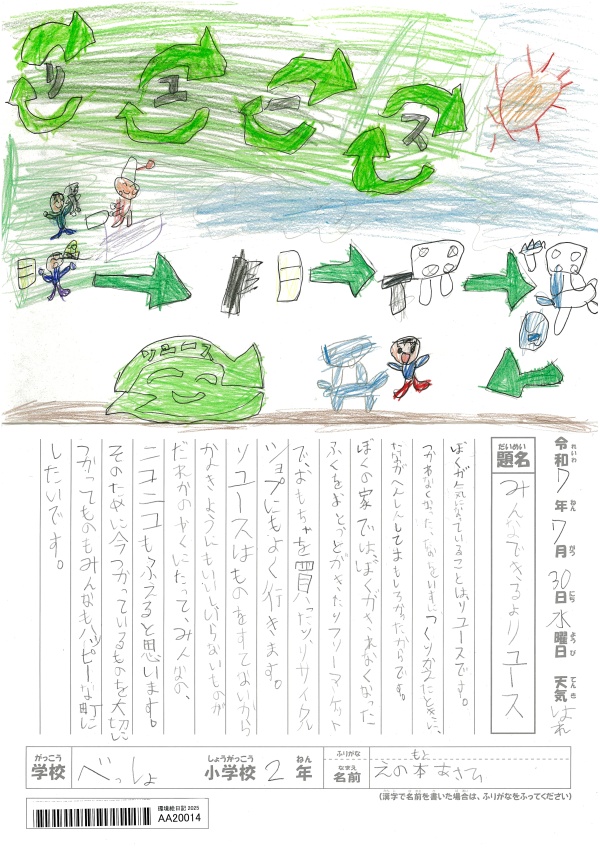 リユース
リユース
令和7年7月30日水曜日 天気 はれ
れいわ ねん がつ にち ようび てんき
だいめい
題名 みんなできるよリユース
ぼくが気になっていることはリユースです。
つかわなくなった
つくりかえたときに、
へんしんして
おもしろかったからです。
ぼくの家では、ぼくがきれなくなった
ふくをおとうとがきたりフリーマーケット
で、おもちゃを買ったり、リサイクル
ショップにもよく行きます。
リユースはものをすてないから
かんきょうにもいいし、いらないものが
だれかのやくにたって、みんなの、
ニコニコもふえると思います。
そのために今つかっているものを大切に
つかってものもみんなもハッピーな町に
したいです。
がっこう しょうがっこう ねん ふりがな もと
学校 べっしょ 小学校 2年 なまえ 名前 えの本 あさひ
(漢字で名前を書いた場合は、ふりがなをふってください)
環境絵日記 2025
AA20014